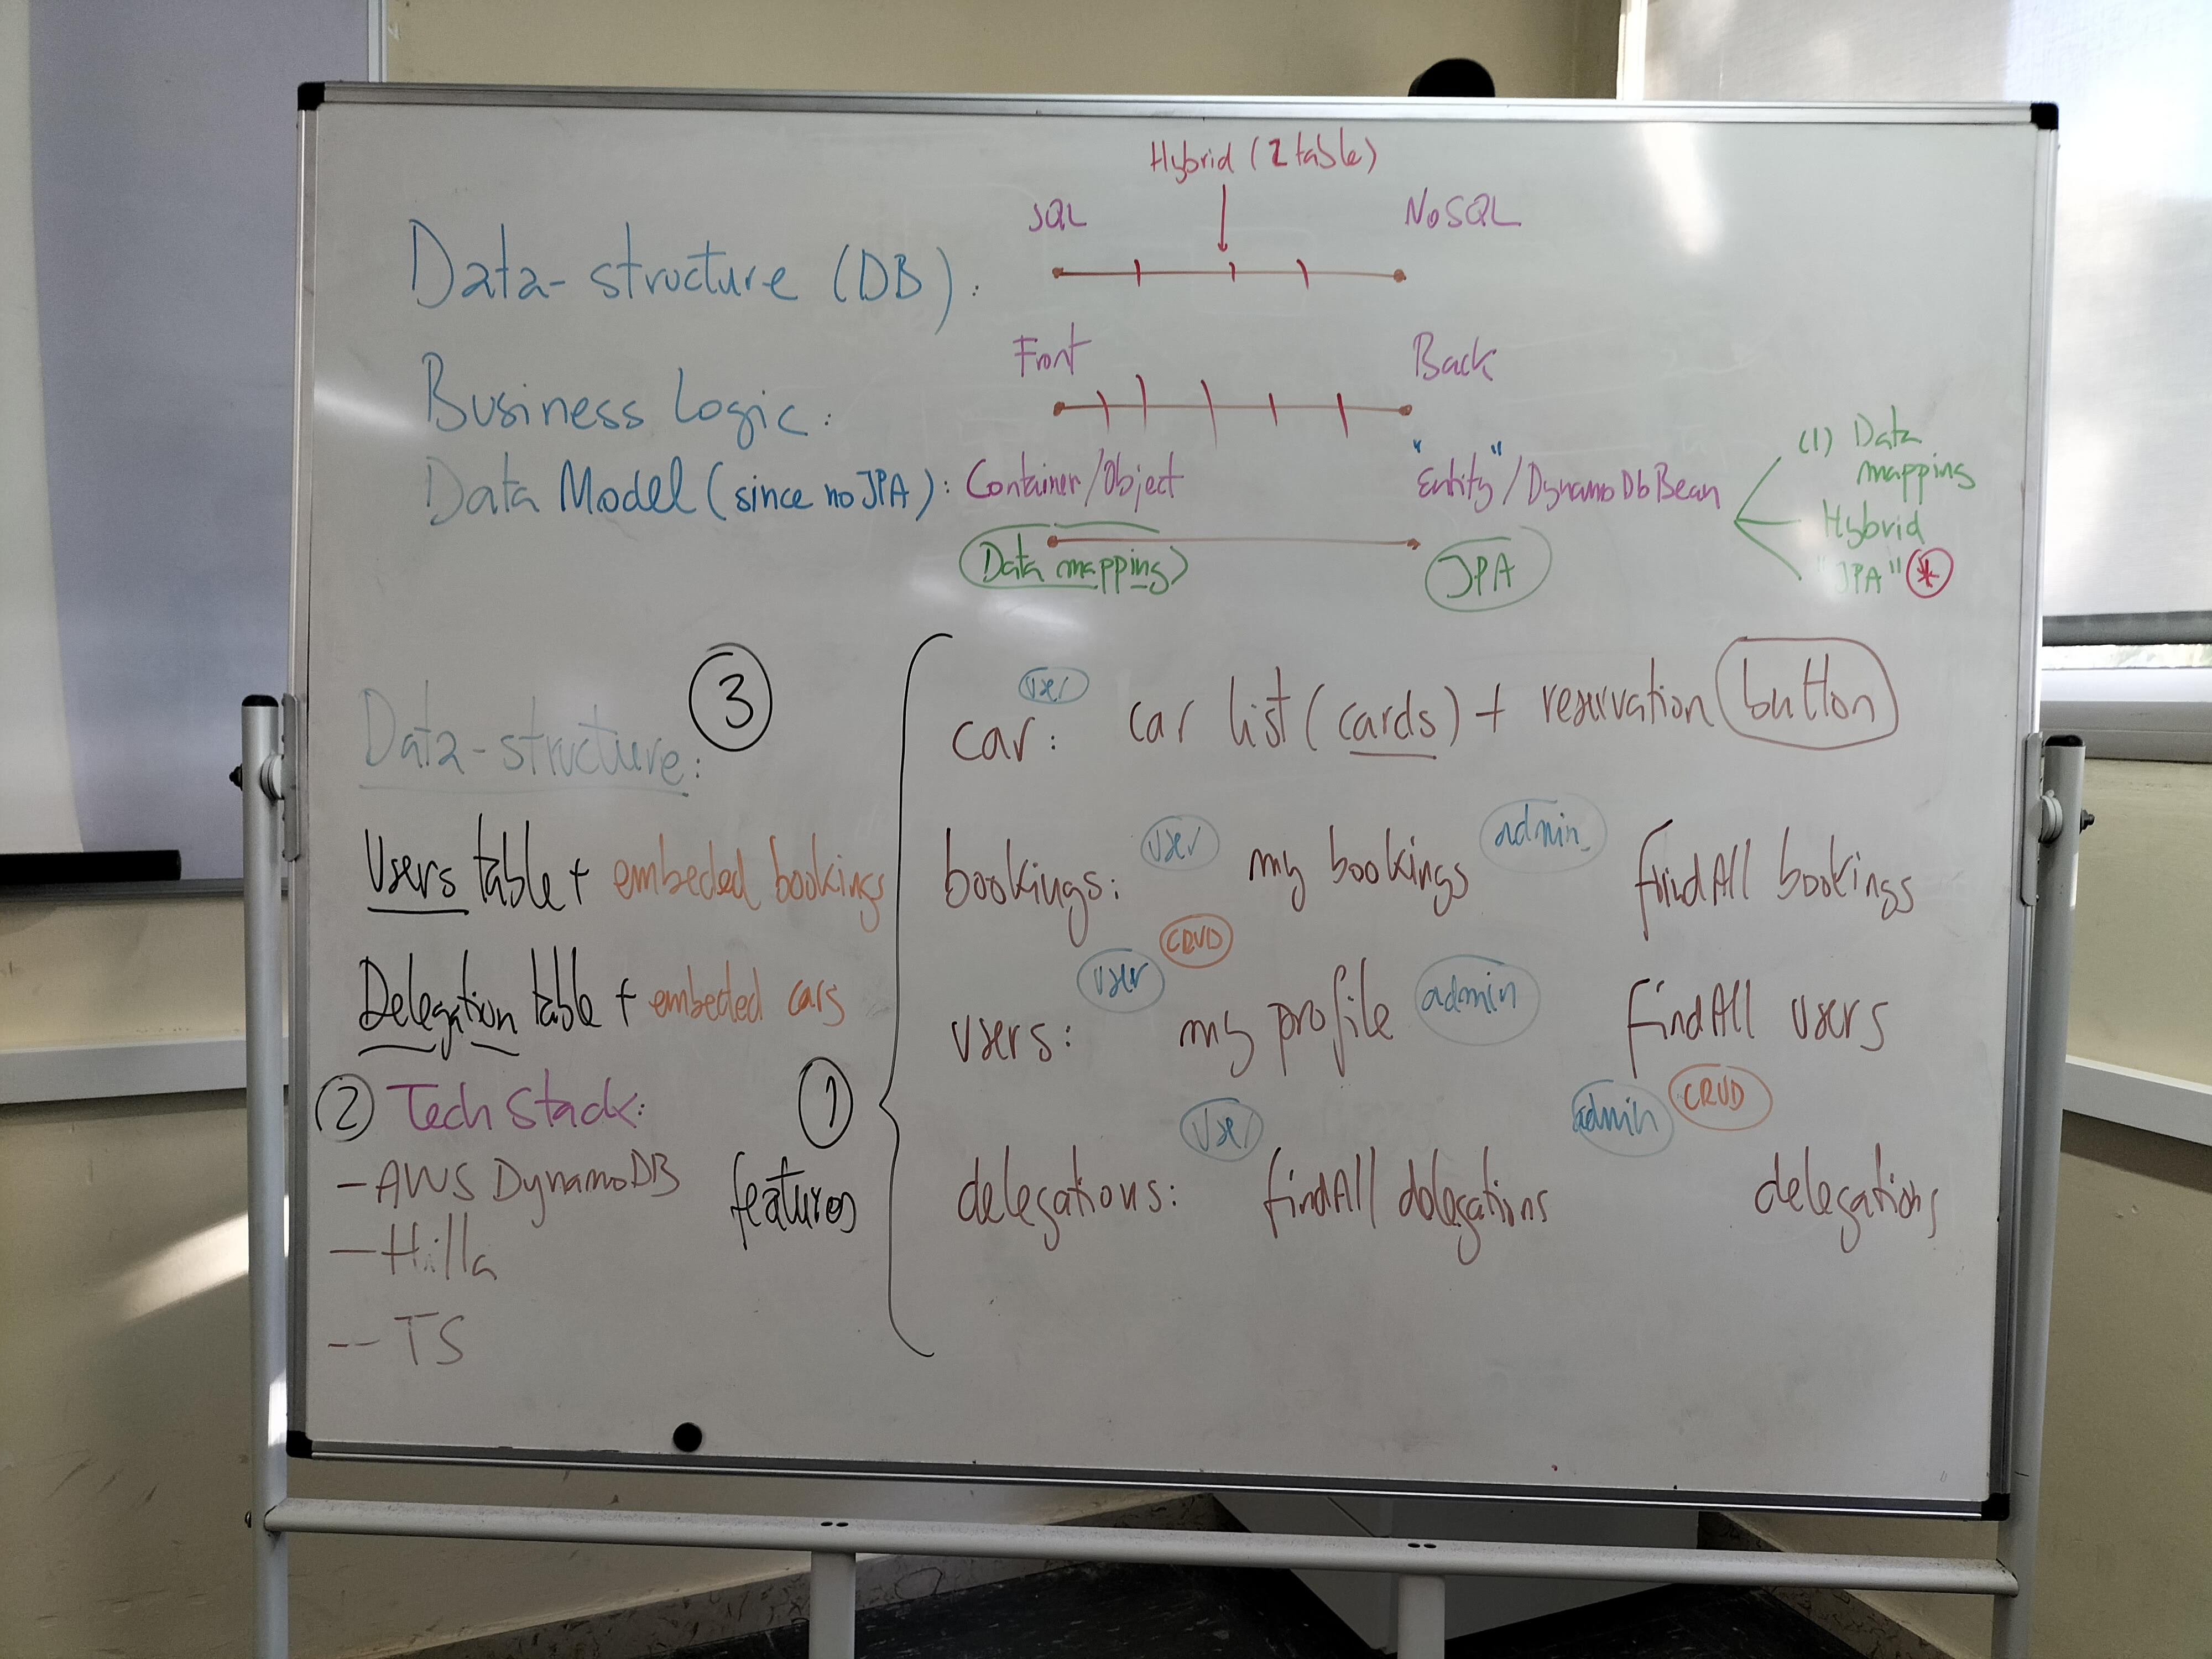 Hybrid (2 table)
SQL
NoSQL
Data-structure (DB):
Front
Back
Business Logic:
Data Model (since no JPA): Container/Object
"Entity"/DynamoDbBean
(1) Data
mapping
Hybrid
"JPA" *
Data mapping
JPA
3
Data-structure:
Users table + embeded bookings
Delegation table + embeded cars
2 Tech Stack:
- AWS DynamoDB
- Hilla
- TS
1
features
user
car: car list (cards) + reservation button
user
admin
bookings: my bookings findAll bookings
user
CRUD
admin
users: my profile findAll users
user
admin
CRUD
delegations: findAll delegations delegations